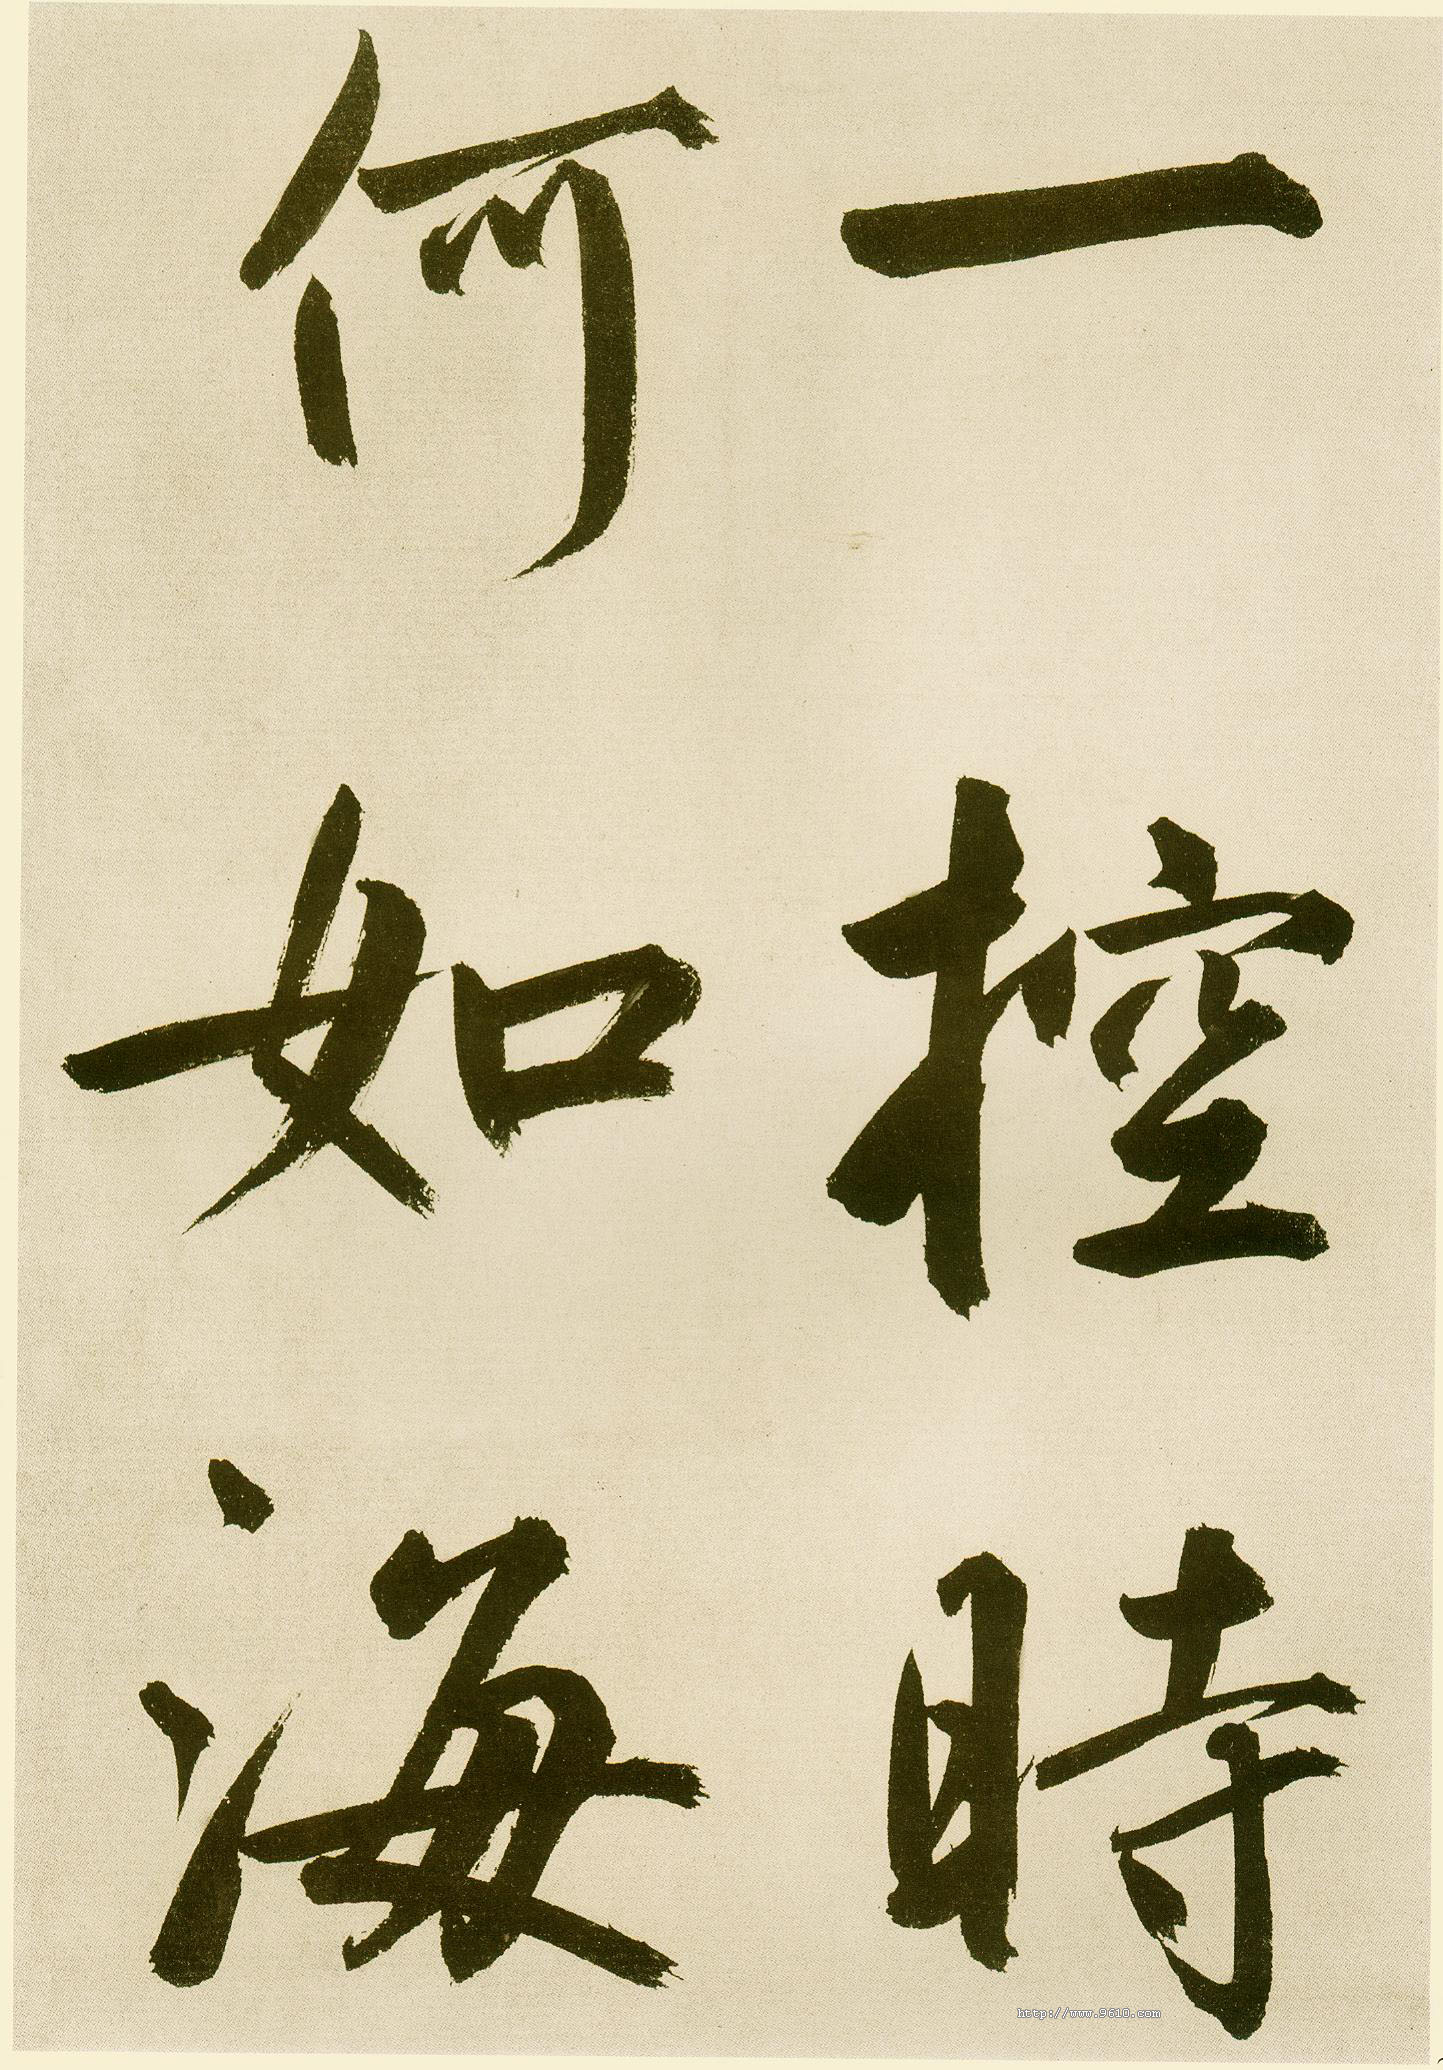 一控時
何如海
http://www.9610.com